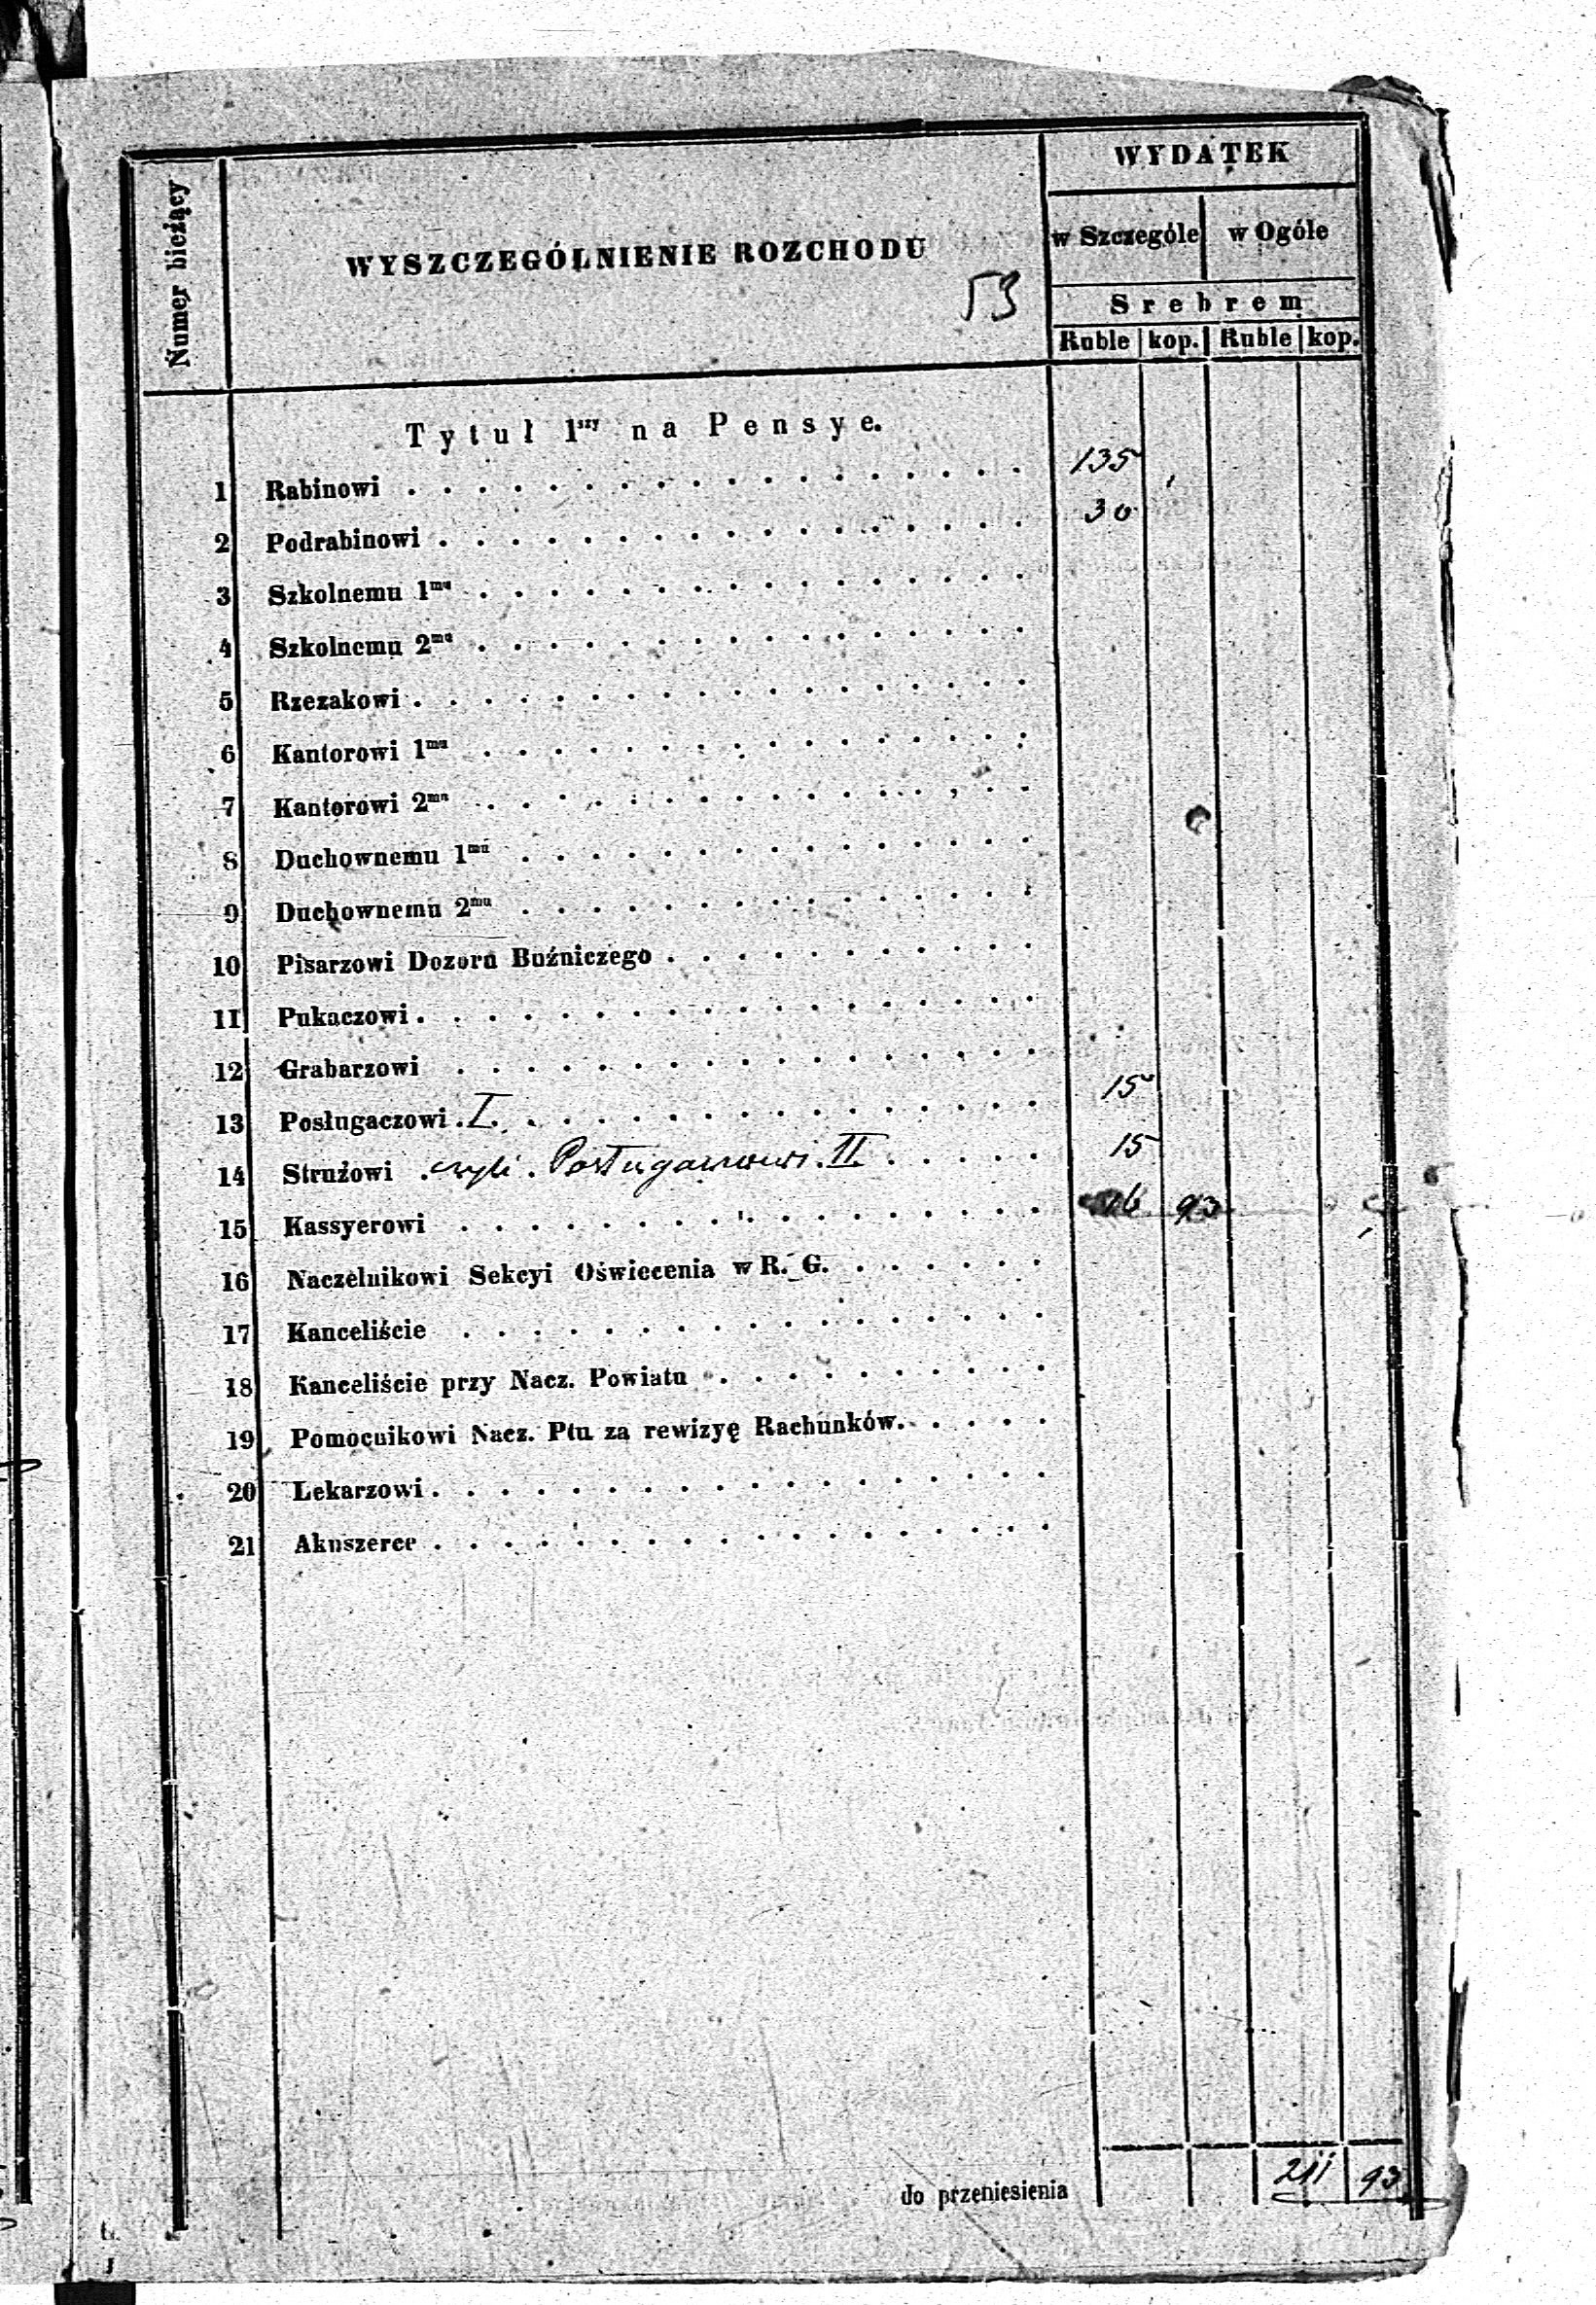 Numer bieżący
WYSZCZEGÓLNIENIE ROZCHODU
53
WYDATEK
w Szczególe w Ogóle
Srebrem
Ruble kop. Ruble kop.
Tytuł 1szy na Pensye.
1 Rabinowi 135
2 Podrabinowi 30
3 Szkolnemu 1mu
4 Szkolnemu 2mu
5 Rzezakowi
6 Kantorowi 1mu
7 Kantorowi 2mu
8 Duchownemu 1mu
9 Duchownemu 2mu
10 Pisarzowi Dozoru Bużniczego
11 Pukaczowi
12 Grabarzowi
13 Posługaczowi I. 15
14 Strużowi czyli Posługaczowi II 15
15 Kassyerowi 16 93
16 Naczelnikowi Sekcyi Oświecenia w R. G.
17 Kanceliście
18 Kanceliście przy Nacz. Powiatu
19 Pomocnikowi Nacz. Ptu za rewizyę Rachunków.
20 Lekarzowi
21 Akuszerce
do przeniesienia 211 93